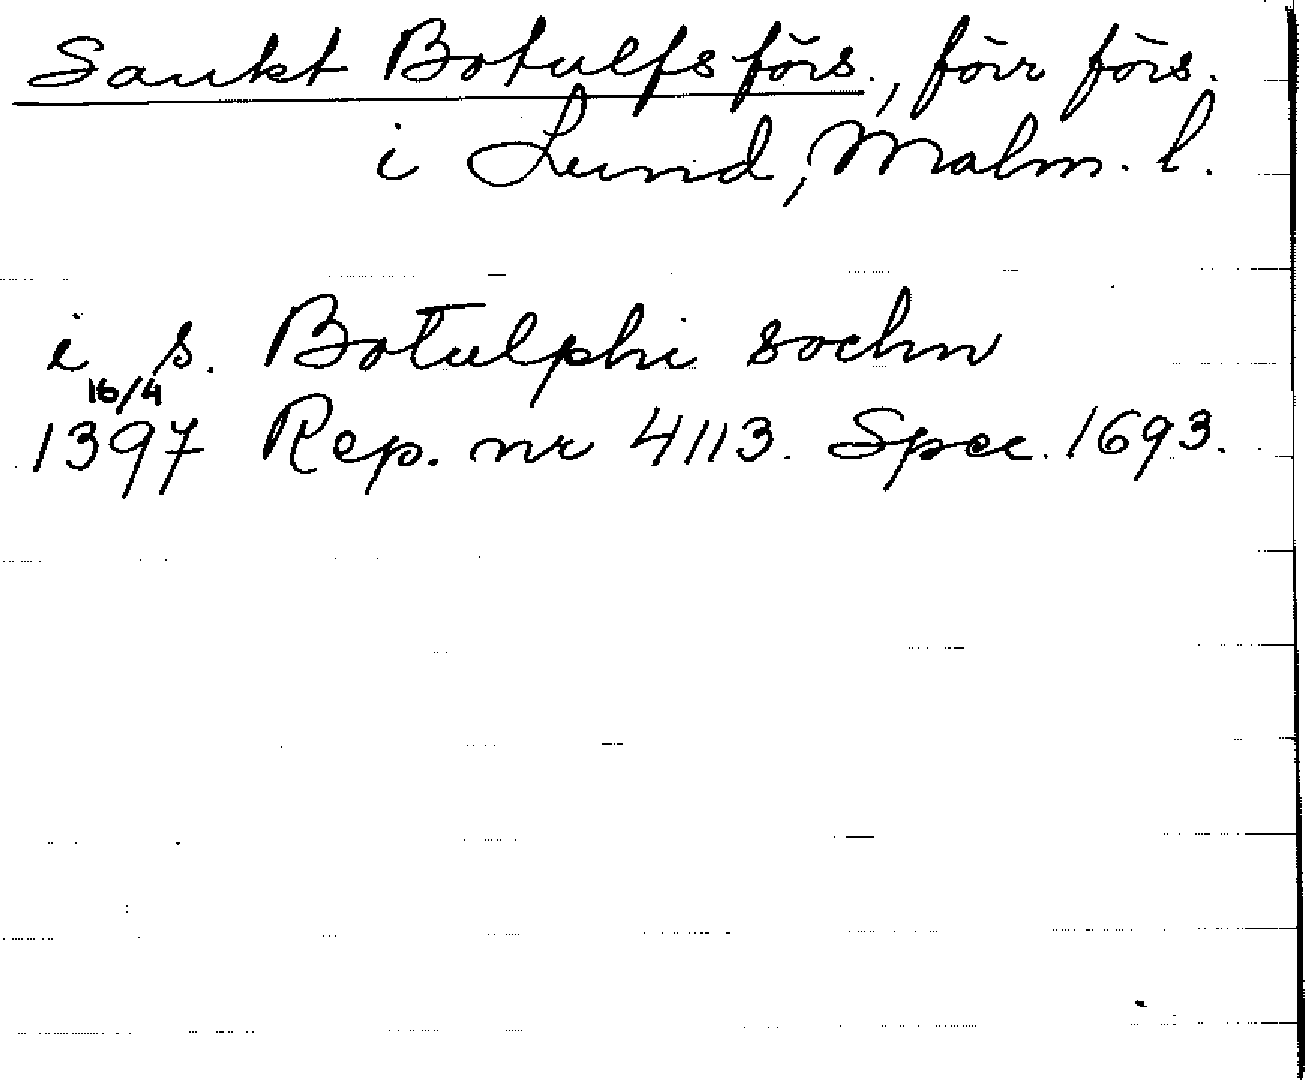 Sankt Botulfs förs., förr förs.
i Lund, Malm. l.
i s. Botulphi sochn
16/4
1397 Rep. nr 4113. Spec. 1693.